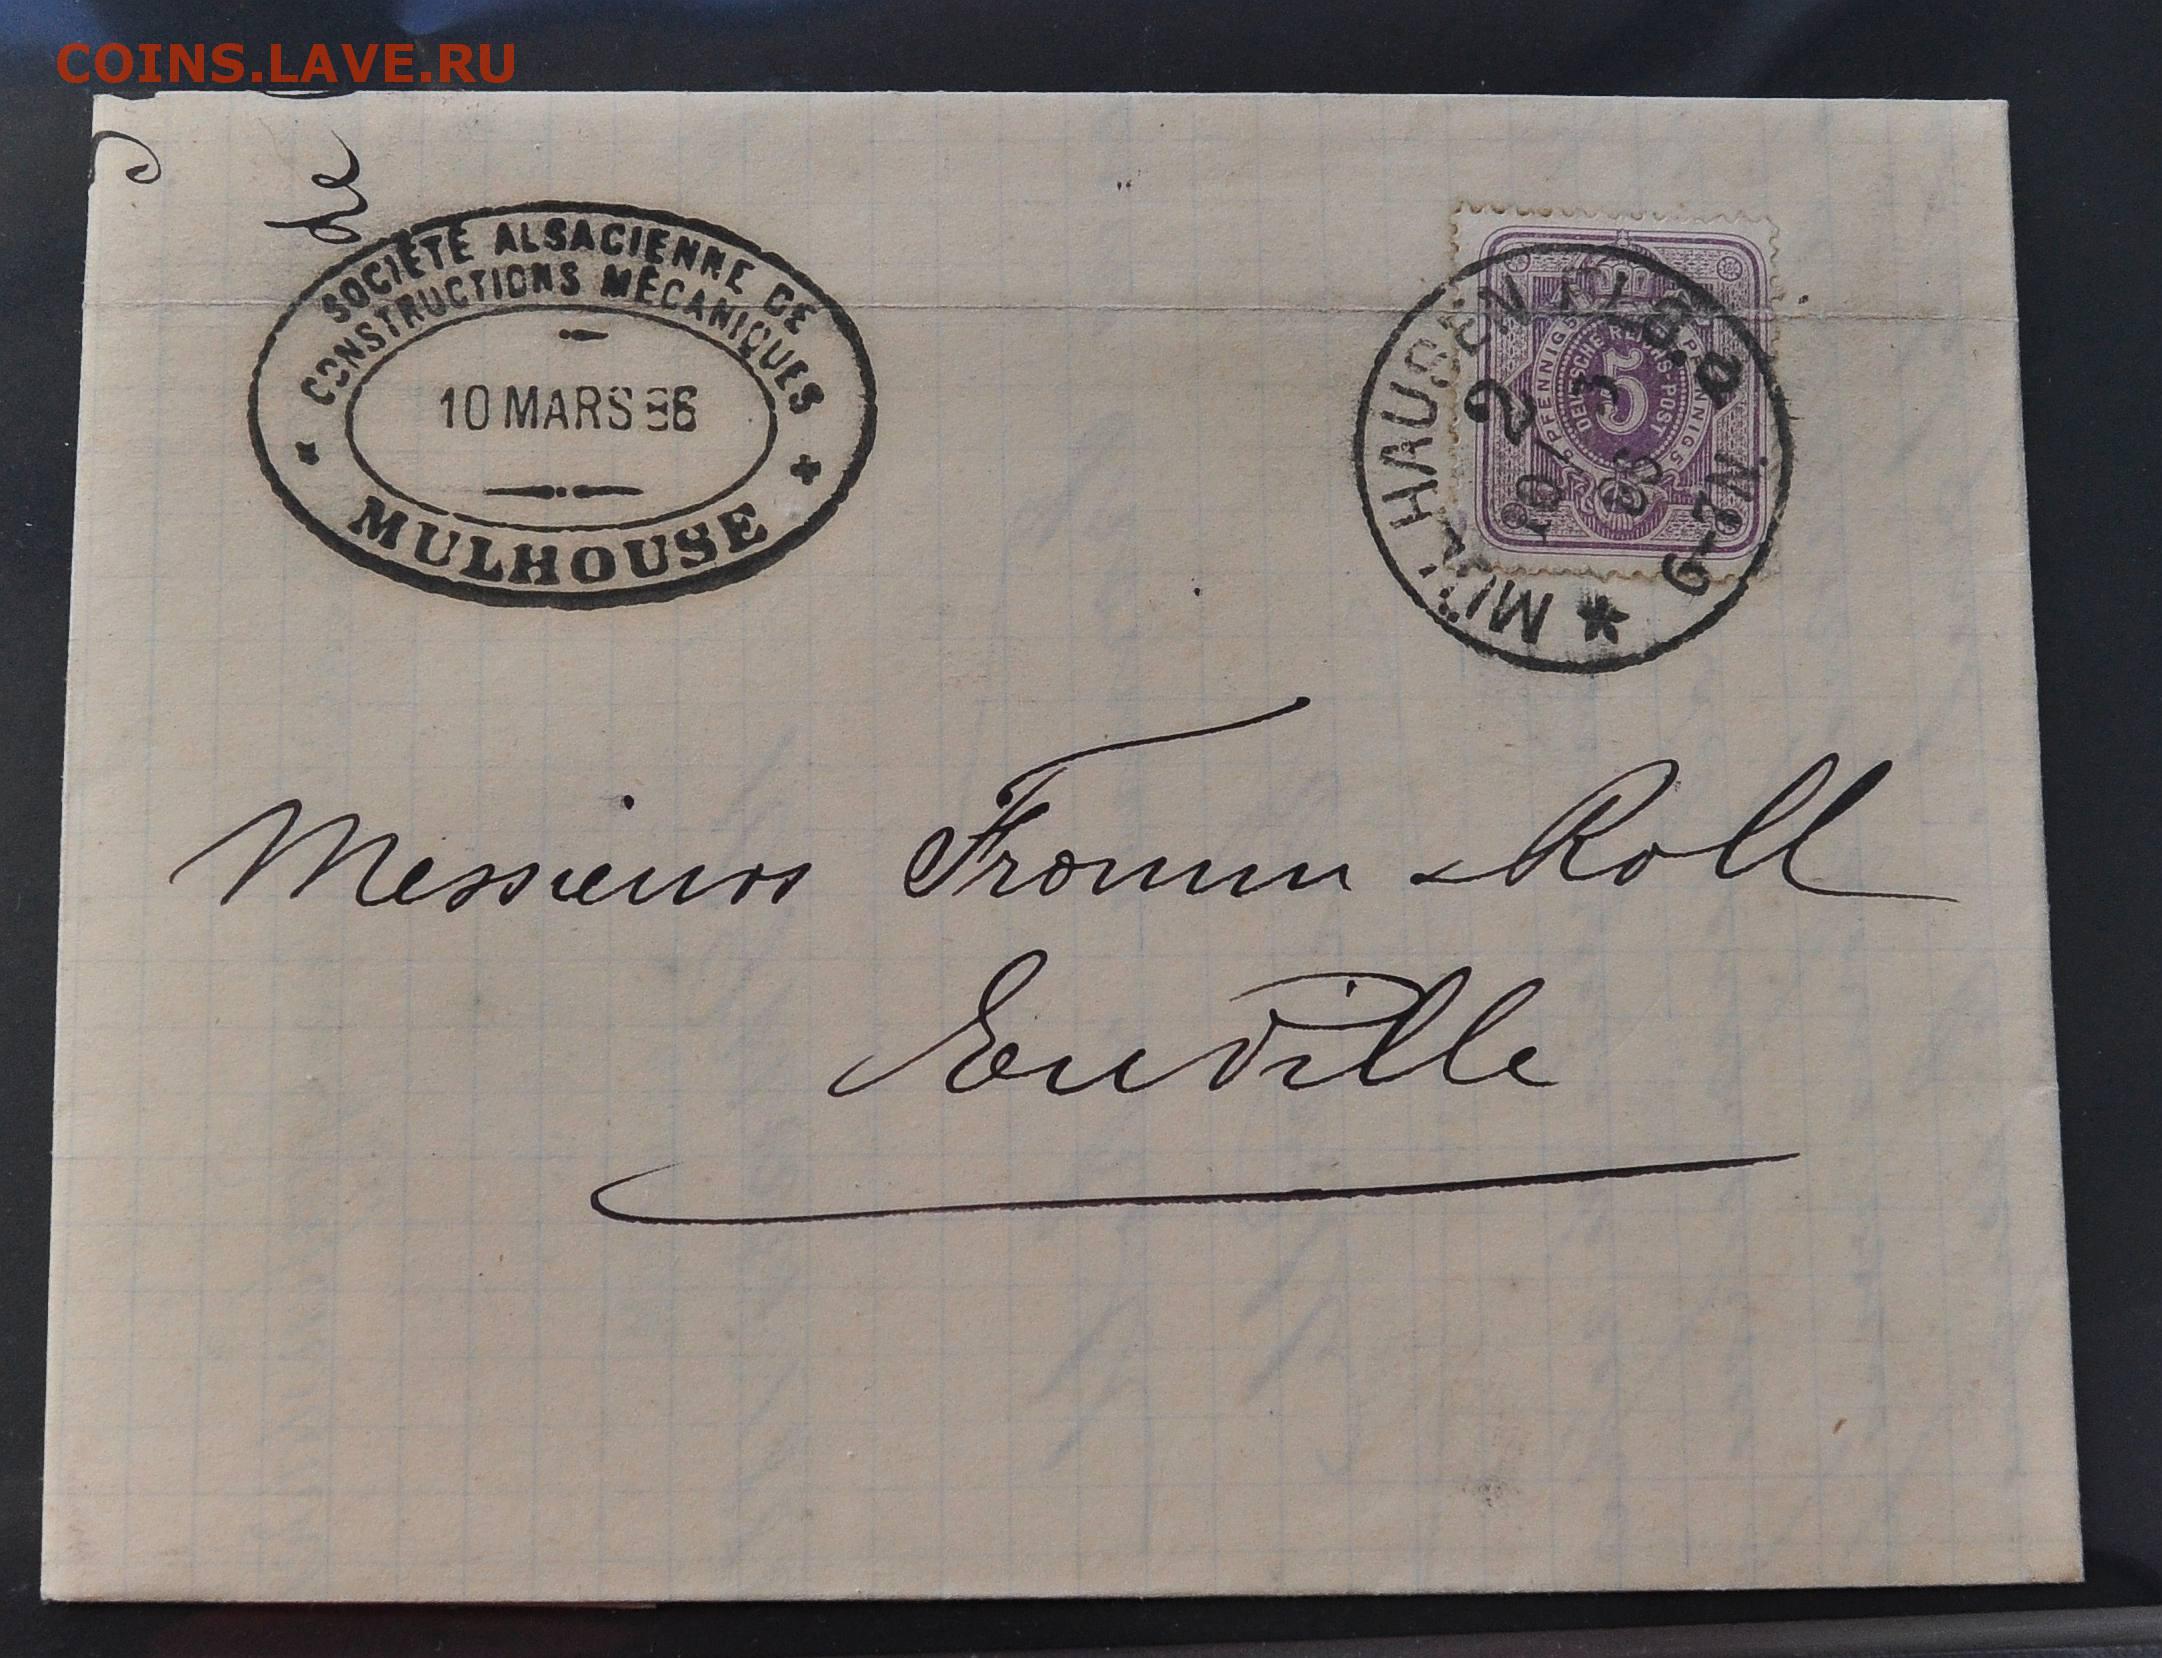 COINS.LAVE.RU
de
SOCIÉTÉ ALSACIENNE DE
CONSTRUCTIONS MÉCANIQUES
10 MARS 86
MULHOUSE
MÜLHAUSEN ELS. 2
10/3
86
6-7N.
5 PFENNIG 5 PFENNIG 5
DEUTSCHE REICHS-POST
5
Messieurs Fromm & Roll
En Ville